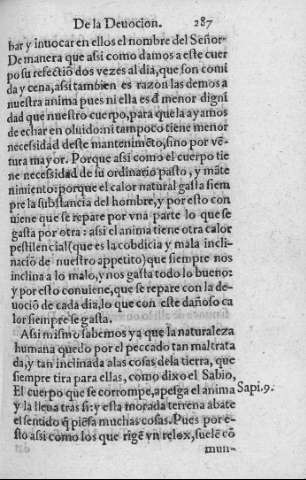 De la Deuocion. 287
bar y inuocar en ellos el nombre del Señor.
De manera que asi como damos a este cuer
po su refectiõ dos vezes al dia, que son comi
da y cena, asi tambien es razon las demos a
nuestra anima pues ni ella es d̃ menor digni
dad que nuestro cuerpo, para que la ayamos
de echar en oluido: ni tampoco tiene menor
necessidad deste mantenimiẽto, sino por vẽ-
tura mayor. Porque asi como el cuerpo tie
ne necessidad de su ordinario pasto, y mãte
nimiento: porque el calor natural gasta siem
pre la substancia del hombre, y por esto con
uiene que se repare por vna parte lo que se
gasta por otra: asi el anima tiene otra calor
pestilencial (que es la cobdicia y mala incli-
naciõ de nuestro appetito) que siempre nos
inclina a lo malo, y nos gasta todo lo bueno:
y por esto conuiene, que se repare con la de-
uociõ de cada dia, lo que con este dañoso ca
lor siempre se gasta.
Asi mismo sabemos ya que la naturaleza
humana quedo por el peccado tan maltrata
da, y tan inclinada alas cosas dela tierra, que
siempre tira para ellas, como dixo el Sabio,
El cuerpo que se corrompe, apesga el anima Sapi. 9.
y la lleua tras si: y esta morada terrena abate
el sentido q̃ piẽsa muchas cosas. Pues por e-
sto asi como los que rigẽ vn relox, suelẽ cõ
mun-